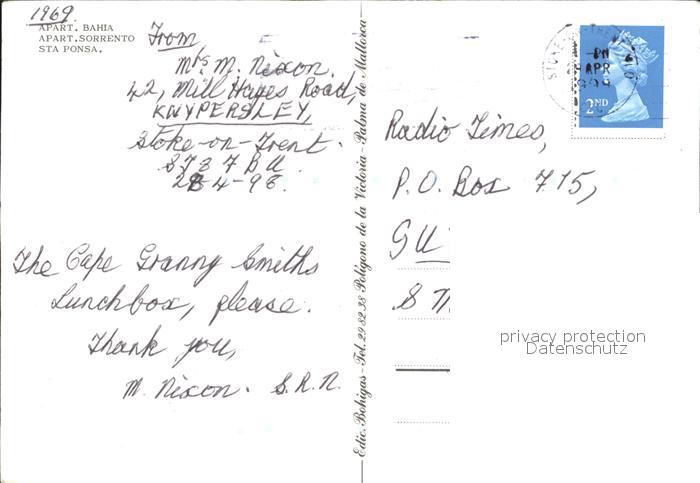 1969
APART. BAHIA
APART. SORRENTO
STA PONSA.
From
Mrs M. Nixon.
42, Mill Hayes Road,
KNYPERSLEY,
Stoke-on-Trent.
ST8 7BU.
28-4-98.
The Cape Granny Smiths
Lunchbox, please.
Thank you,
M. Nixon. S.R.N.
Edic. Bohigas - Tel. 29 82 38 Polígono de la Victoria - Palma de Mallorca
STOKE-ON-TRENT
PM
APR
2ND
Radio Times,
P.O. Box 715,
GU
privacy protection
Datenschutz